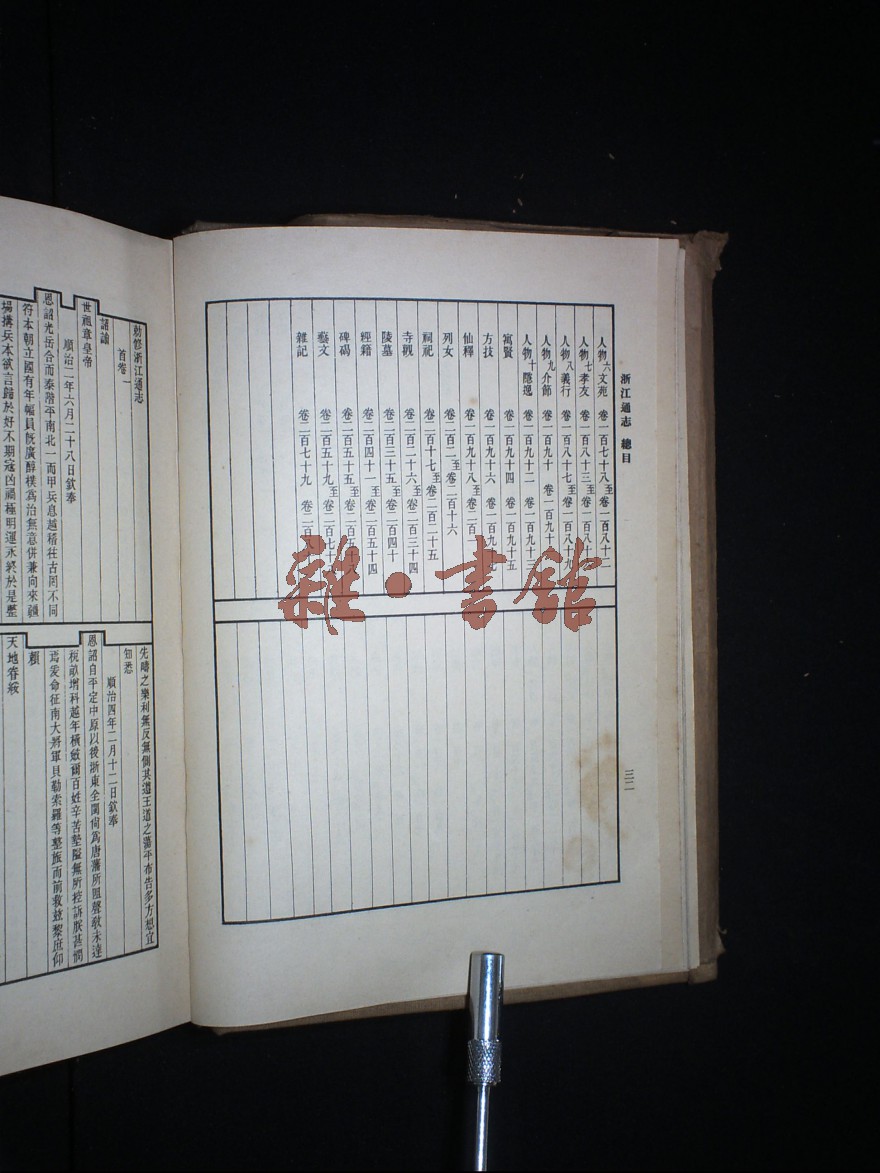 浙江通志 總目
三二
人物六文苑 卷一百七十八至卷一百八十二
人物七孝友 卷一百八十三至卷一百八十
人物八義行 卷一百八十七至卷一百八十九
人物九介節 卷一百九十 卷一百九十一
人物十隱逸 卷一百九十二 卷一百九十三
寓賢 卷一百九十四 卷一百九十五
方技 卷一百九十六 卷一百九十
仙釋 卷一百九十八至卷二百一
列女 卷二百二至卷二百十六
祠祀 卷二百十七至卷二百二十五
寺觀 卷二百二十六至卷二百三十四
陵墓 卷二百三十五至卷二百四十
經籍 卷二百四十一至卷二百五十四
碑碣 卷二百五十五至卷二百五十八
藝文 卷二百五十九至卷二百七十
雜記 卷二百七十九 卷二百八
雜·書館
勅修浙江通志
首卷一
詔諭
世祖章皇帝
順治二年六月二十八日欽奉
恩詔光岳合而泰階平南北一而甲兵息越稽往古罔不同
符本朝立國有年幅員旣廣醇樸爲治無意併兼向來疆
場搆兵本欲言歸於好不期寇凶禍極明運永終於是整
先疇之樂利無反無側其遵王道之蕩平布告多方想宜
知悉
順治四年二月十二日欽奉
恩詔自平定中原以後浙東全閩尙爲唐藩所阻聲敎未達
稅畝增科越年橫斂爾百姓辛苦墊隘無所控訴朕甚憫
焉爰命征南大將軍貝勒索羅等整旅而前救玆黎庶仰
賴
天地眷綏